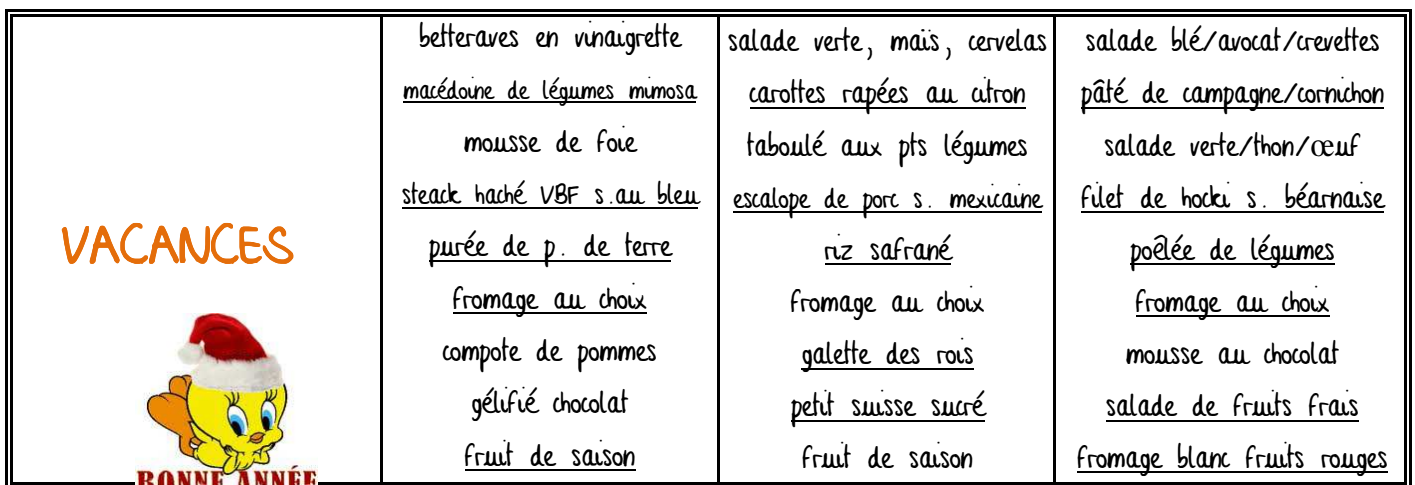 VACANCES
BONNE ANNÉE
betteraves en vinaigrette
macédoine de légumes mimosa
mousse de foie
steack haché VBF s.au bleu
purée de p. de terre
fromage au choix
compote de pommes
gélifié chocolat
fruit de saison
salade verte, maïs, cervelas
carottes rapées au citron
taboulé aux pts légumes
escalope de porc s. mexicaine
riz safrané
fromage au choix
galette des rois
petit suisse sucré
fruit de saison
salade blé/avocat/crevettes
pâté de campagne/cornichon
salade verte/thon/œuf
filet de hocki s. béarnaise
poêlée de légumes
fromage au choix
mousse au chocolat
salade de fruits frais
fromage blanc fruits rouges